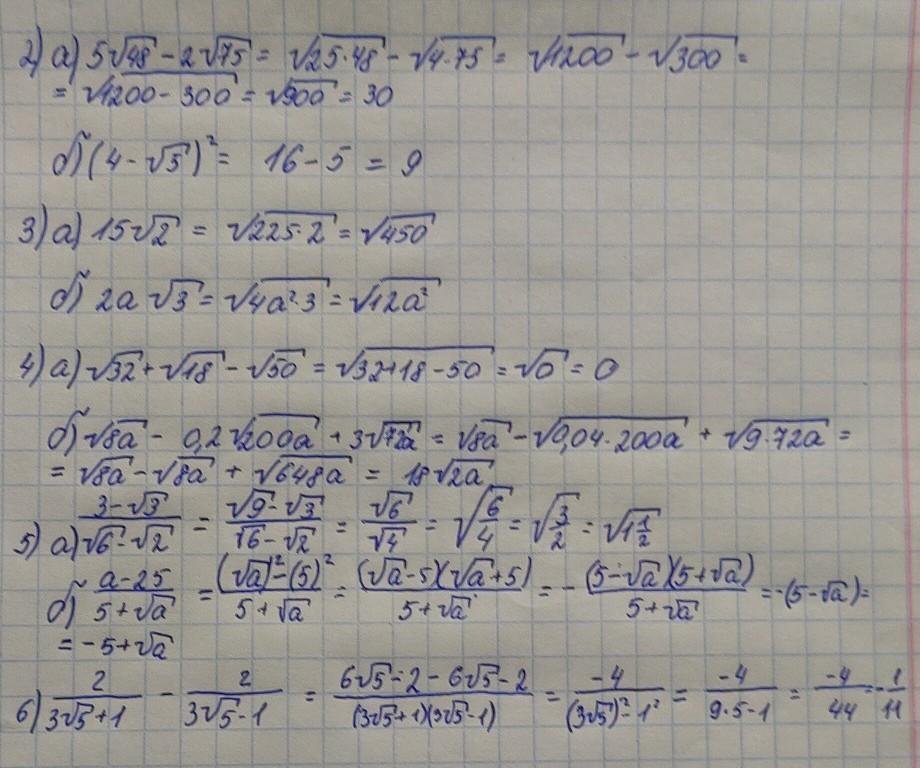 2) а) 5√48 - 2√75 = √25·48 - √4·75 = √1200 - √300 =
= √1200 - 300 = √900 = 30
б) (4 - √5)² = 16 - 5 = 9
3) а) 15√2 = √225·2 = √450
б) 2а √3 = √4а²·3 = √12а²
4) а) √32 + √18 - √50 = √32+18-50 = √0 = 0
б) √8а - 0,2√200а + 3√72а = √8а - √0,04·200а + √9·72а =
= √8а - √8а + √648а = 18√2а
5) а) (3-√3)/(√6-√2) = (√9-√3)/(√6-√2) = √6/√4 = √(6/4) = √(3/2) = √(1 1/2)
б) (а-25)/(5+√а) = ((√а)²-(5)²)/(5+√а) = ((√а-5)(√а+5))/(5+√а) = - ((5-√а)(5+√а))/(5+√а) = -(5-√а) =
= -5+√а
6) 2/(3√5+1) - 2/(3√5-1) = (6√5-2-6√5-2)/((3√5+1)(3√5-1)) = -4/((3√5)²-1²) = -4/(9·5-1) = -4/44 = -1/11